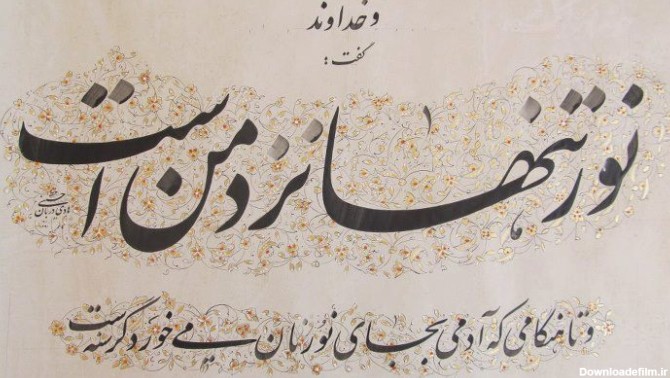 و خداوند
گفت :
نور تنها نزد من است
و تا هنگامی که آدمی بجای نور نان می خورد گرسنه است
Downloadefilm.ir